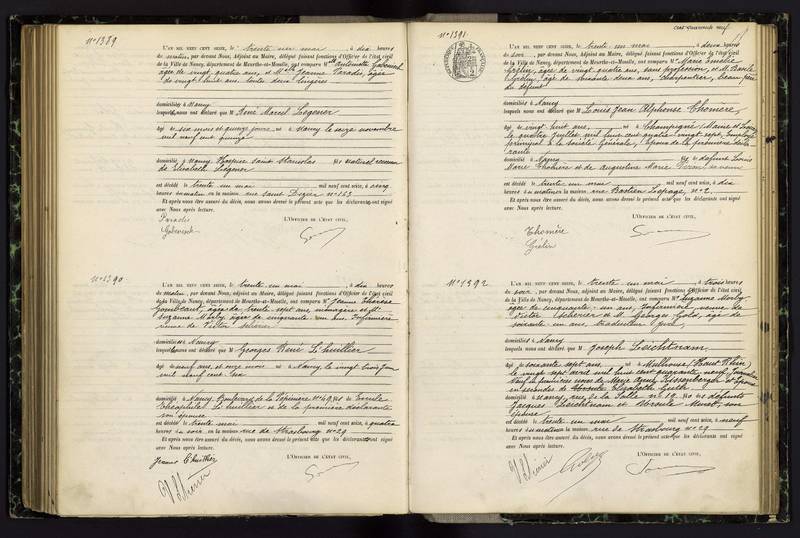 N° 1389
L'AN MIL NEUF CENT SEIZE, le trente un mai, à dix heures
du matin, par devant Nous, Adjoint au Maire, délégué faisant fonctions d'Officier de l'état civil
de la Ville de Nancy, département de Meurthe-et-Moselle, ont comparu Mlle Antoinette
âgée de vingt quatre ans, et Mlle Jeanne Paradis, âgée
de vingt huit ans, toutes deux lingères
domiciliées à Nancy
lesquelles nous ont déclaré que M René Marcel Legener
âgé de six mois et quinze jours, né à Nancy le seize novembre
mil neuf cent quinze
domicilié à Nancy, Hospice Saint Stanislas fils naturel reconnu
de Elisabeth Legener
est décédé le trente un mai mil neuf cent seize, à cinq
heures du matin en la maison rue Saint Dizier n° 153
Et après nous être assuré du décès, nous avons dressé le présent acte que les déclarantes ont signé
avec Nous après lecture.
L'OFFICIER DE L'ÉTAT CIVIL,
Paradis
N° 1390
L'AN MIL NEUF CENT SEIZE, le trente un mai, à dix heures
du matin, par devant Nous, Adjoint au Maire, délégué faisant fonctions d'Officier de l'état civil
de la Ville de Nancy, département de Meurthe-et-Moselle, ont comparu Me Jeanne Thérèse
âgée de trente sept ans ménagère et Me
Suzanne Morly âgée de cinquante un ans, Infirmière
veuve de Victor
domiciliées à Nancy
lesquelles nous ont déclaré que M Georges René Lhuillier
âgé de neuf ans et onze mois né à Nancy, le vingt trois juin
mil neuf cent six
domicilié à Nancy, Boulevard de la Pépinière n° 49 fils de
Théophile Lhuillier et de la première déclarante
son épouse
est décédé le trente mai mil neuf cent seize, à quatre
heures du soir en la maison rue de Strasbourg n° 29
Et après nous être assuré du décès, nous avons dressé le présent acte que les déclarantes ont signé
avec Nous après lecture.
L'OFFICIER DE L'ÉTAT CIVIL,
Jeanne Lhuillier
Cent quarante neuf
N° 1391
L'AN MIL NEUF CENT SEIZE, le trente un mai, à deux heures
du soir, par devant Nous, Adjoint au Maire, délégué faisant fonctions d'Officier de l'état civil
de la Ville de Nancy, département de Meurthe-et-Moselle, ont comparu Me Marie
âgée de vingt quatre ans, sans profession, et M. Basile
âgé de soixante deux ans, charpentier, beau père
du défunt
domiciliés à Nancy
lesquels nous ont déclaré que M Louis Jean Alphonse Thomère
âgé de vingt huit ans, né à Champigné (Maine et Loire)
le quatre juillet mil huit cent quatre vingt sept, Employé
principal à la Société Générale, époux de la première décla-
rante
domicilié à Nancy fils de défunt Louis
Marie Thomère et de Augustine Marie sa veuve
est décédé le trente un mai mil neuf cent seize, à dix
heures du matin en la maison rue Bastien Lepage, n° 2
Et après nous être assuré du décès, nous avons dressé le présent acte que les déclarants ont signé
avec Nous après lecture.
L'OFFICIER DE L'ÉTAT CIVIL,
Thomère
N° 1392
L'AN MIL NEUF CENT SEIZE, le trente un mai, à trois heures
du soir, par devant Nous, Adjoint au Maire, délégué faisant fonctions d'Officier de l'état civil
de la Ville de Nancy, département de Meurthe-et-Moselle, ont comparu Me Suzanne Morly
âgée de cinquante un ans, Infirmière, veuve de
Victor et M. Georges Golz, âgé de
soixante un ans, traducteur
domiciliés à Nancy
lesquels nous ont déclaré que M Joseph Leichtnam
âgé de soixante sept ans, né à Mulhouse (Haut Rhin)
le vingt sept avril mil huit cent quarante neuf,
veuf en premières noces de Marie et époux
en secondes de
domicilié à Nancy, rue de la Salle n° 19 fils de défunts
Jacques Leichtnam et Ursule son
épouse
est décédé le trente un mai mil neuf cent seize, à neuf
heures du matin en la maison rue de Strasbourg n° 29
Et après nous être assuré du décès, nous avons dressé le présent acte que les déclarants ont signé
avec Nous après lecture.
L'OFFICIER DE L'ÉTAT CIVIL,